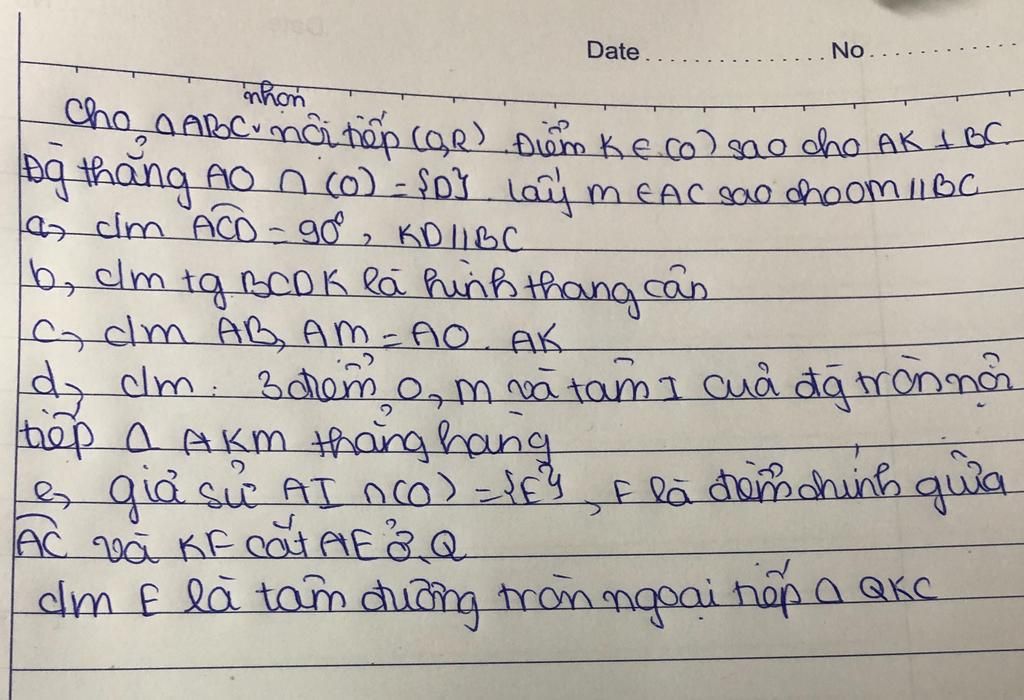 Date................ No................
nhọn
Cho ΔABC v nội tiếp (O,R) Điểm K ∈ (O) sao cho AK ⊥ BC
Đg thẳng AO ∩ (O) = {D}. lấy M ∈ AC sao cho OM // BC
a, cm ACD = 90°, KD // BC
b, cm tg BCDK là hình thang cân
c, cm AB. AM = AO. AK
d, cm: 3 điểm O, M và tâm I của đg tròn nội
tiếp Δ AKM thẳng hàng
e, giả sử AI ∩ (O) = {E}, F là điểm chính giữa
AC và KF cắt AE ở Q
cm E là tâm đường tròn ngoại tiếp Δ QKC